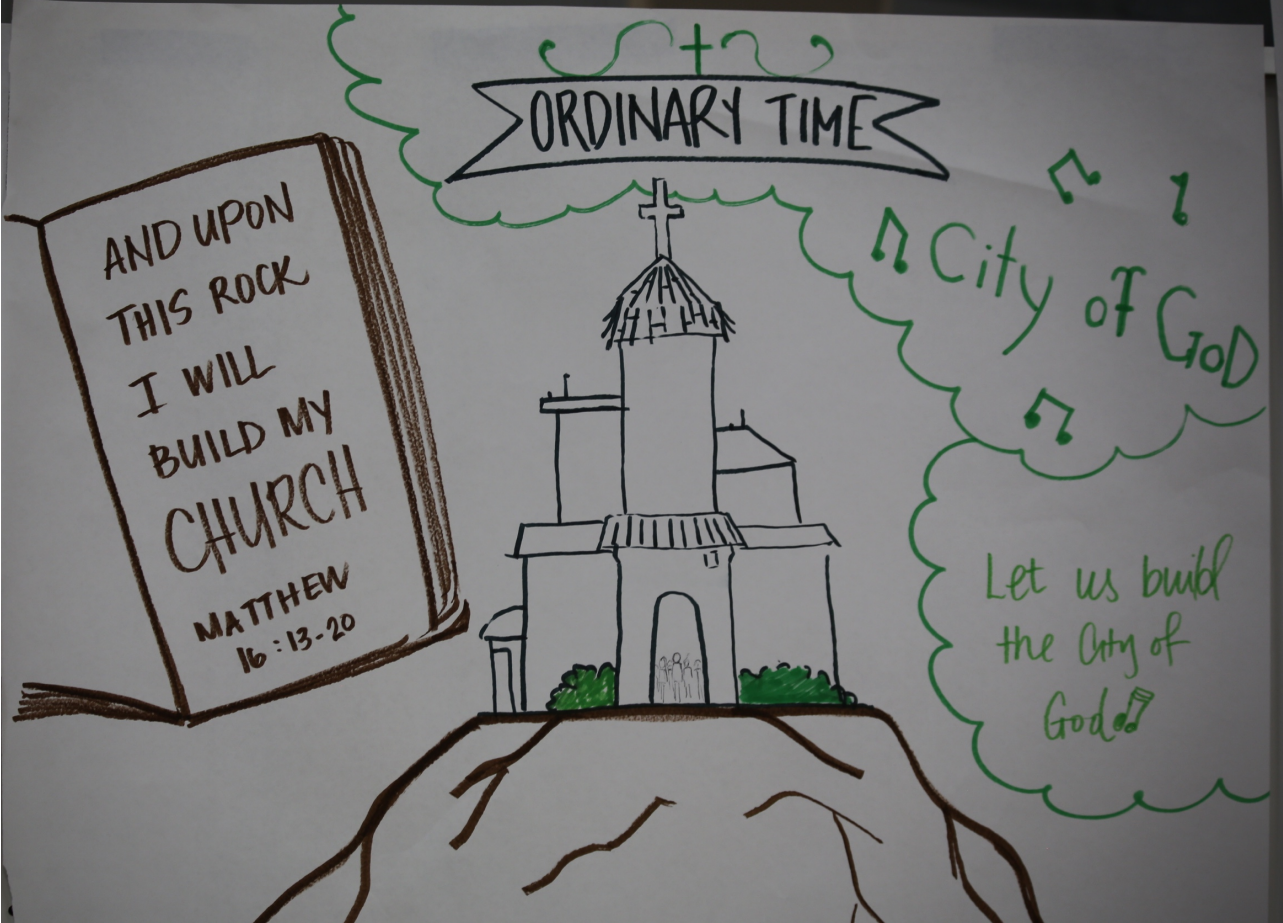 ORDINARY TIME
AND UPON
THIS ROCK
I WILL
BUILD MY
CHURCH
MATTHEW
16:13-20
City of GoD
Let us build
the City of
God